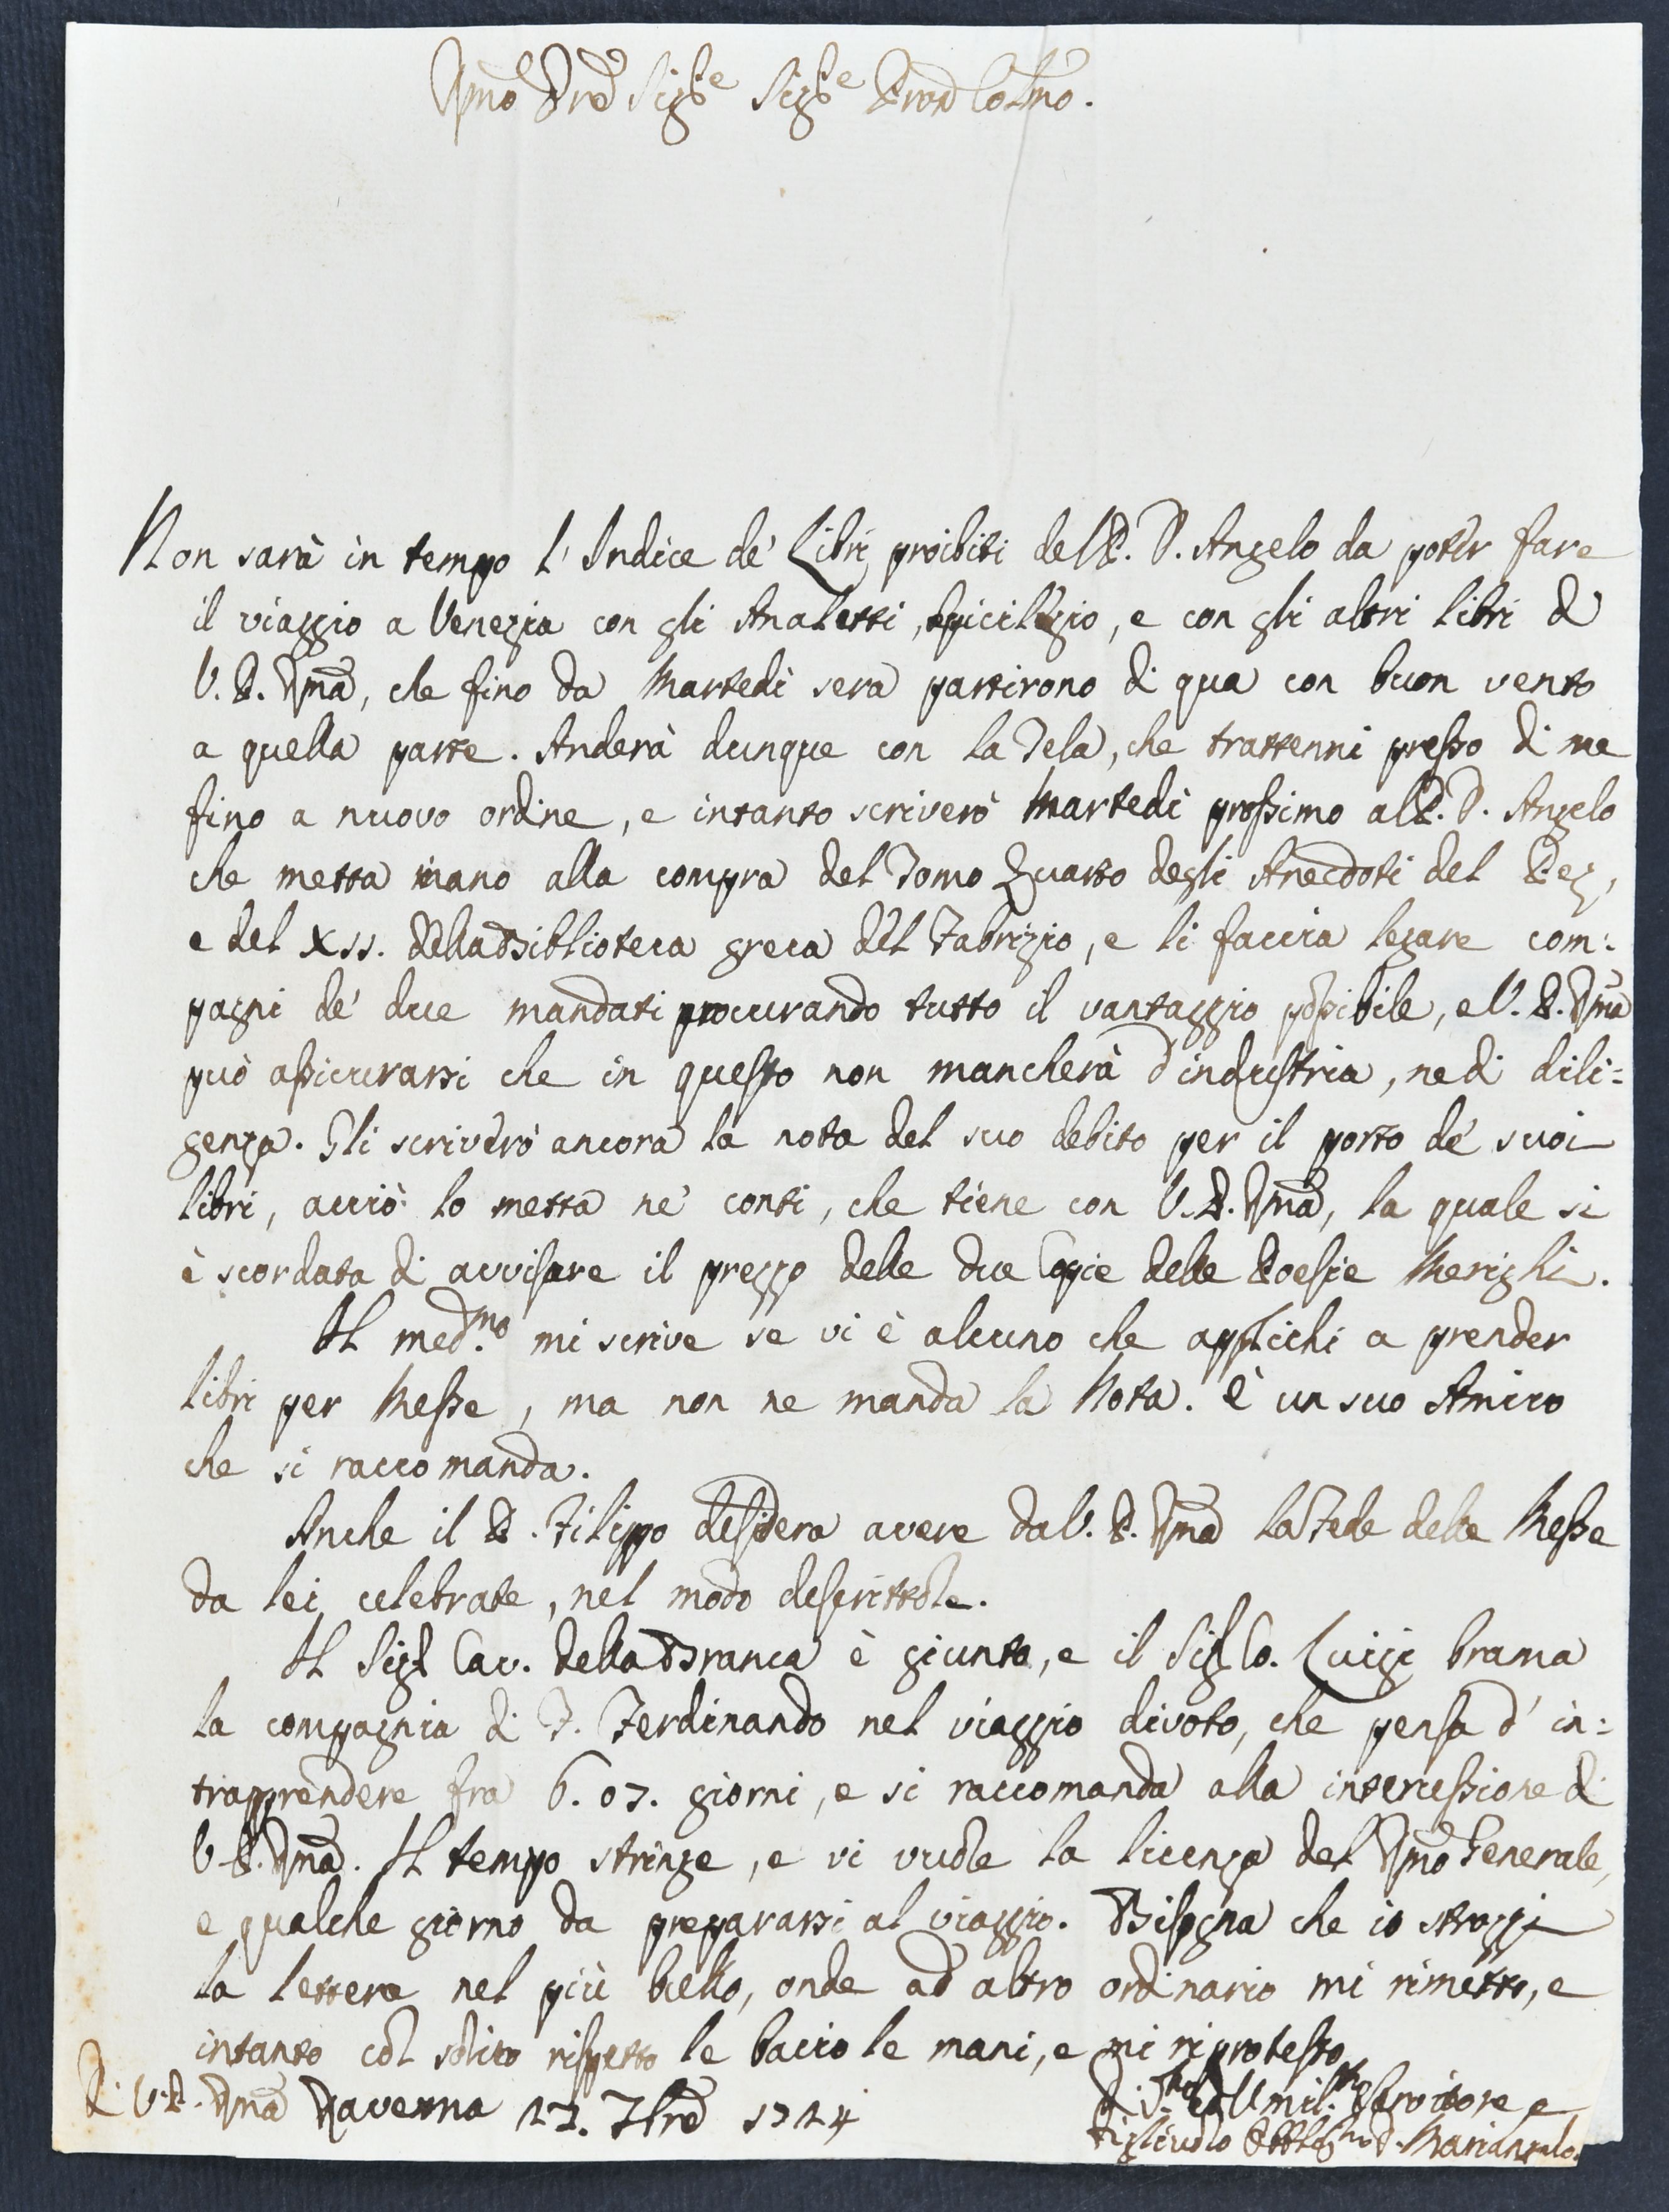 Rmo Pre Sigre Sigre Pron Colmo.
Non sarà in tempo l'Indice de' Libri proibiti del P. D. Angelo da poter fare
il viaggio a Venezia con gli Analetti, Spicilegio, e con gli altri libri di
V. P. Rma, che fino da Martedì sera partirono di qua con buon vento
a quella parte. Anderà dunque con la Tela, che trattenni presso di me
fino a nuovo ordine, e intanto scriverò Martedì prossimo al P. D. Angelo
che metta mano alla compra del Tomo Quarto degli Anecdoti del Pez,
e del XII. della Biblioteca greca del Fabrizio, e li faccia legare com:
pagni de' due mandati procurando tutto il vantaggio possibile, e V. P. Rma
può assicurarsi che in questo non mancherà d'industria, ne di dili:
genza. Gli scriverò ancora la nota del suo debito per il porto de' suoi
libri, acciò lo metta ne' conti, che tiene con V. P. Rma, la quale si
è scordata di avvisare il prezzo delle due Copie delle Poesie Merighi.
Il med.mo mi scrive se vi è alcuno che applichi a prender
libri per Messe, ma non ne manda la Nota. È un suo Amico
che si raccomanda.
Anche il P. Filippo desidera avere da V. P. Rma la Fede delle Messe
da lei celebrate, nel modo descrittole.
Il Sigr Cav. della Branca è giunto, e il Sigr Co. Luigi brama
la compagnia di F. Ferdinando nel viaggio divoto, che pensa d'in:
trapprendere fra 6. o 7. giorni, e si raccomanda alla intercessione di
V. P. Rma. Il tempo stringe, e vi vuole la licenza del Rmo Generale,
e qualche giorno da prepararsi al viaggio. Bisogna che io strozzi
la lettera nel più bello, onde ad altro ordinario mi rimetto, e
intanto col solito rispetto le bacio le mani, e mi riprotesto
Di V. P. Rma Ravenna 27. 7bre 1724
Umil.mo Servitore e
Figliuolo D. Mariangelo